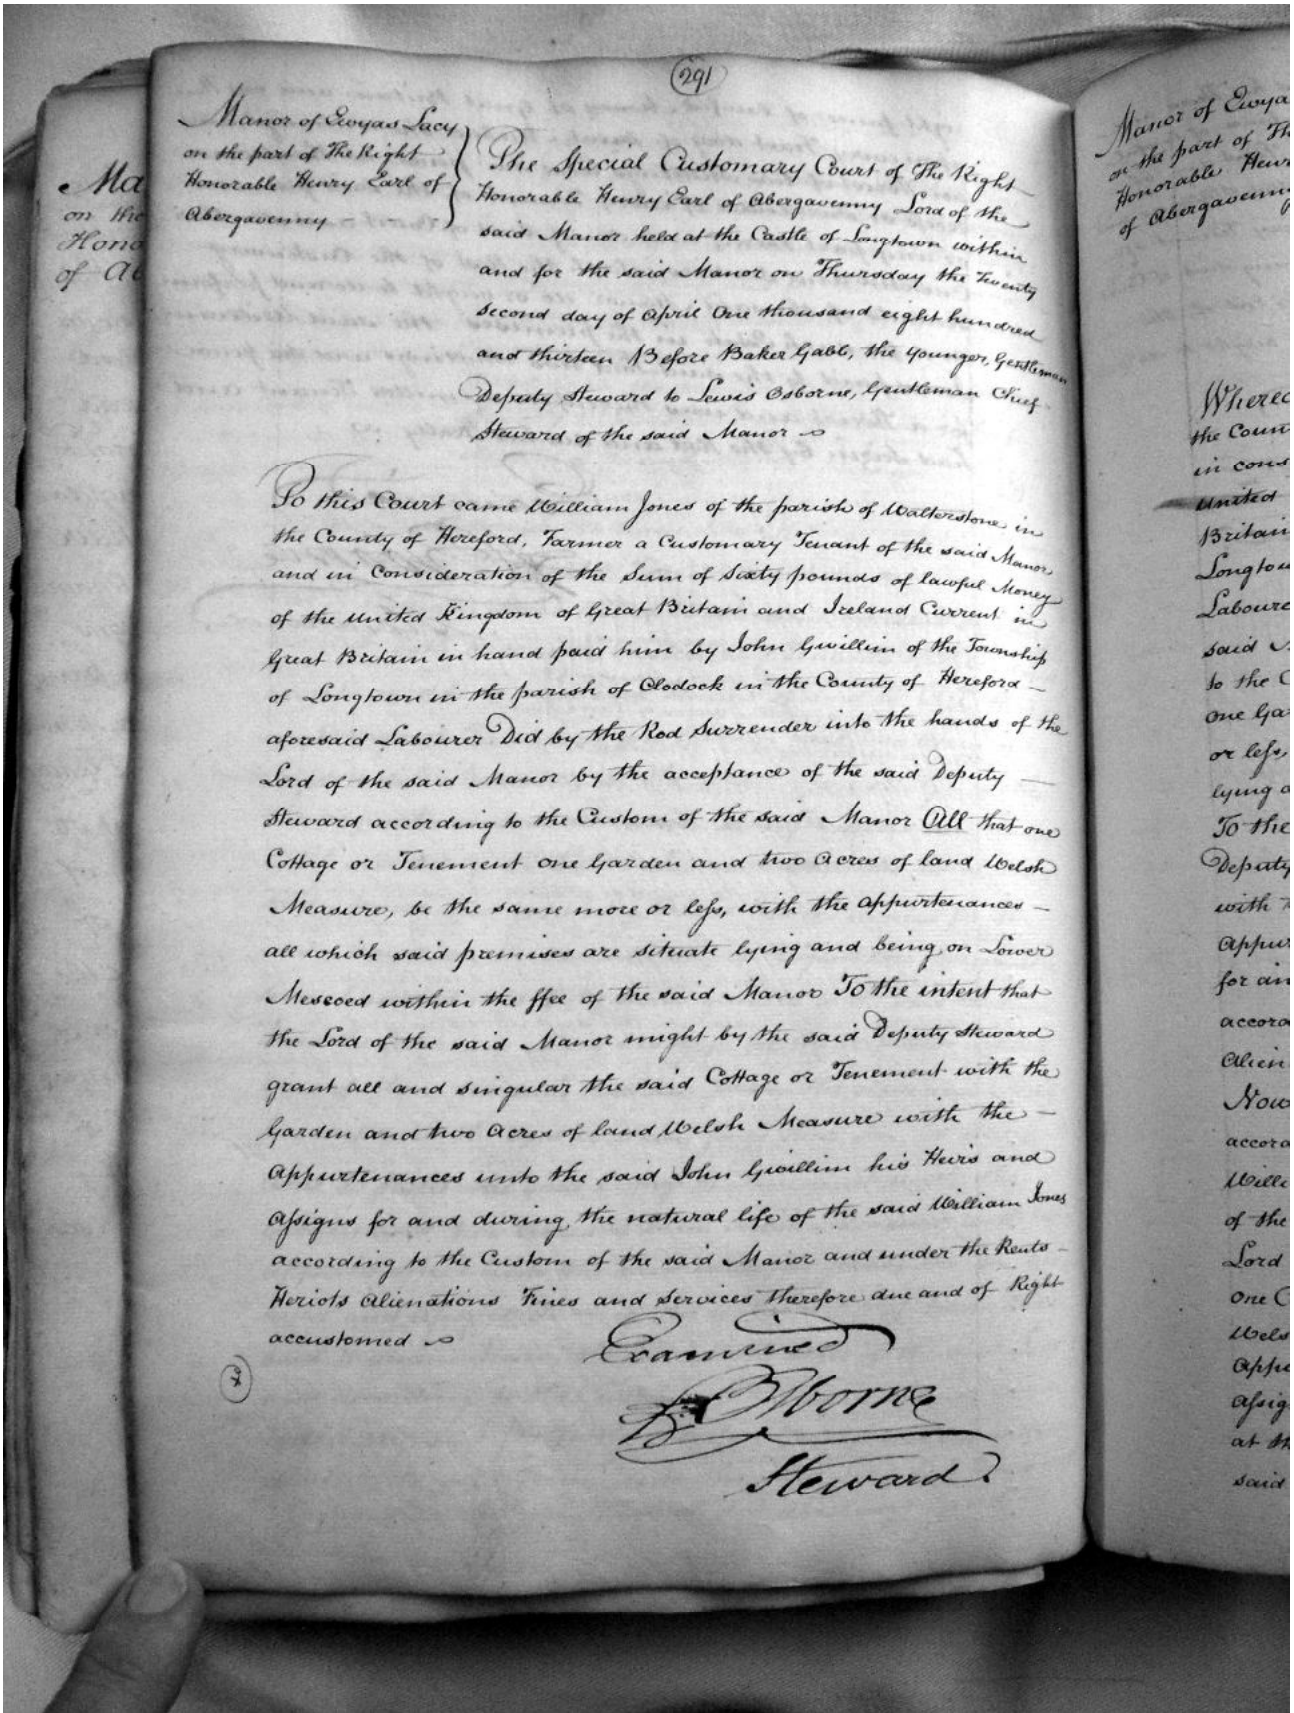 291
Manor of Ewyas Lacy
on the part of The Right
Honorable Henry Earl of
Abergavenny
The Special Customary Court of The Right
Honorable Henry Earl of Abergavenny Lord of the
said Manor held at the Castle of Longtown within
and for the said Manor on Thursday the Twenty
second day of April One thousand eight hundred
and thirteen Before Baker Gabb, the younger, Gentleman
Deputy Steward to Lewis Osborne, Gentleman Chief
Steward of the said Manor
To this Court came William Jones of the parish of Walterstone in
the County of Hereford, Farmer a Customary Tenant of the said Manor
and in Consideration of the Sum of Sixty pounds of lawful Money
of the United Kingdom of Great Britain and Ireland Current in
Great Britain in hand paid him by John Gwillim of the Township
of Longtown in the parish of Clodock in the County of Hereford –
aforesaid Labourer Did by the Rod Surrender into the hands of the
Lord of the said Manor by the acceptance of the said Deputy –
Steward according to the Custom of the said Manor All that one
Cottage or Tenement one Garden and two Acres of land Welsh
Measure, be the same more or less, with the appurtenances –
all which said premises are situate lying and being on Lower
Mescoed within the ffee of the said Manor To the intent that
the Lord of the said Manor might by the said Deputy Steward
grant all and singular the said Cottage or Tenement with the
Garden and two Acres of land Welsh Measure with the –
Appurtenances unto the said John Gwillim his Heirs and
Assigns for and during the natural life of the said William Jones
according to the Custom of the said Manor and under the Rents –
Heriots Alienations Fines and Services therefore due and of Right
accustomed
Examined
Osborne
Steward.
Ma
on the
Hono
of Ab
Manor of Ewya
on the part of Th
Honorable Henr
of Abergavenny
Wherea
the Coun
in cons
United
Britain
Longtow
Laboure
said
to the C
one Ga
or less,
lying a
To the
Deputy
with
Appur
for an
accord
Alien
Now
accord
Willi
of the
Lord
One C
Wels
Appu
Assig
at th
said